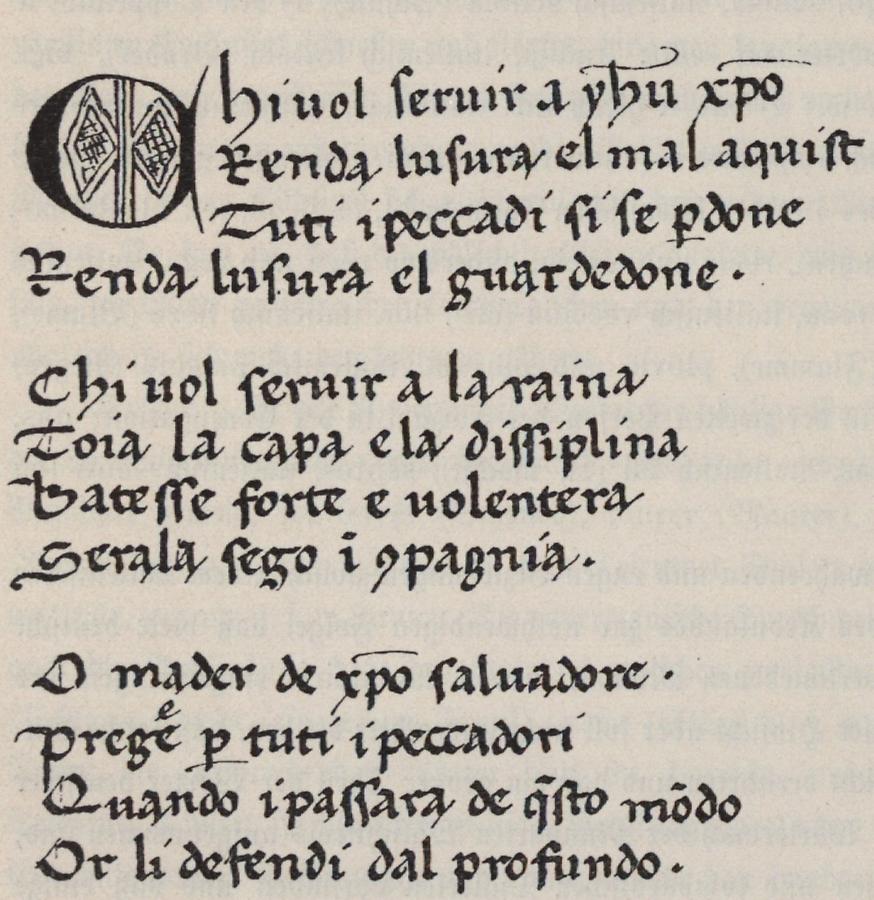 Chi uol seruir a yhū xp̄o
Renda lusura el mal aquist
Tuti ipeccadi si se p̱done
Renda lusura el guardedone ·
Chi uol seruir a la raina
Toia la capa e la dissiplina
Batesse forte e uolentera
Serala sego ī ꝯpagnia ·
O mader de xp̄o saluadore ·
pregͤ p̱ tuti ipeccadori
Quando ipassara de q̄sto mōdo
Or li defendi dal profundo ·